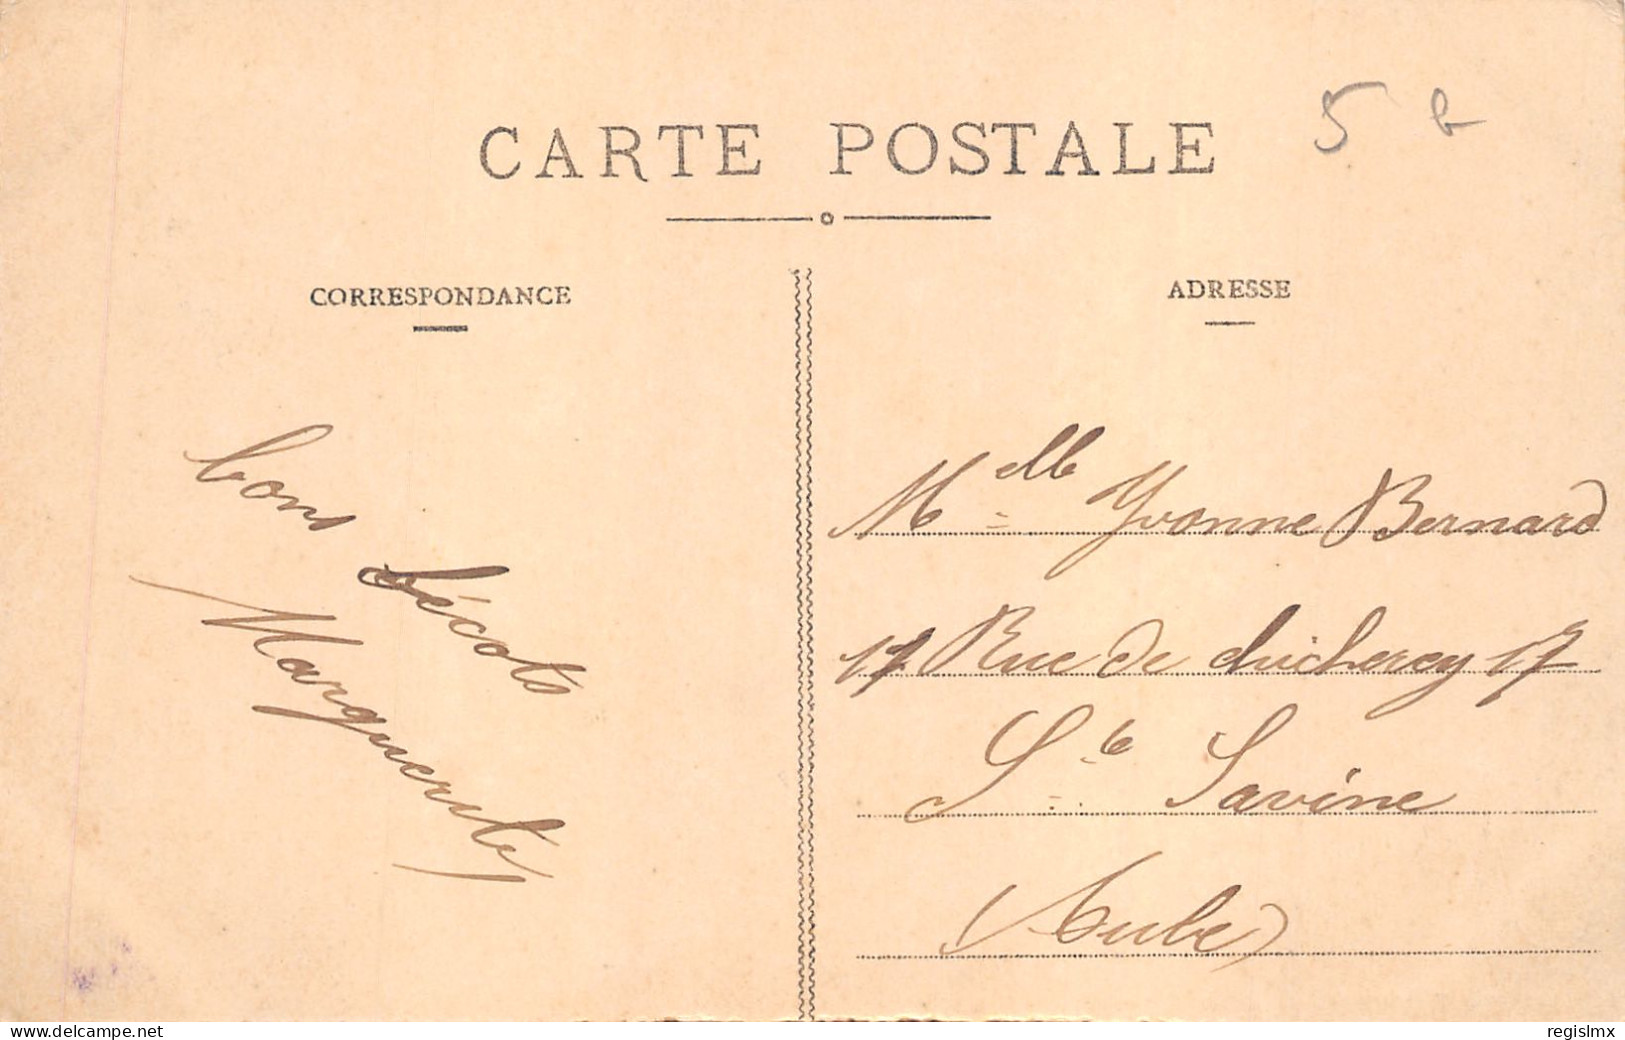 CARTE POSTALE
5 b
CORRESPONDANCE
bons bécots
Marguerite
ADRESSE
Melle Yvonne Bernard
17 Rue de chicherey 17
Ste Savine
Aube
www.delcampe.net
regislmx